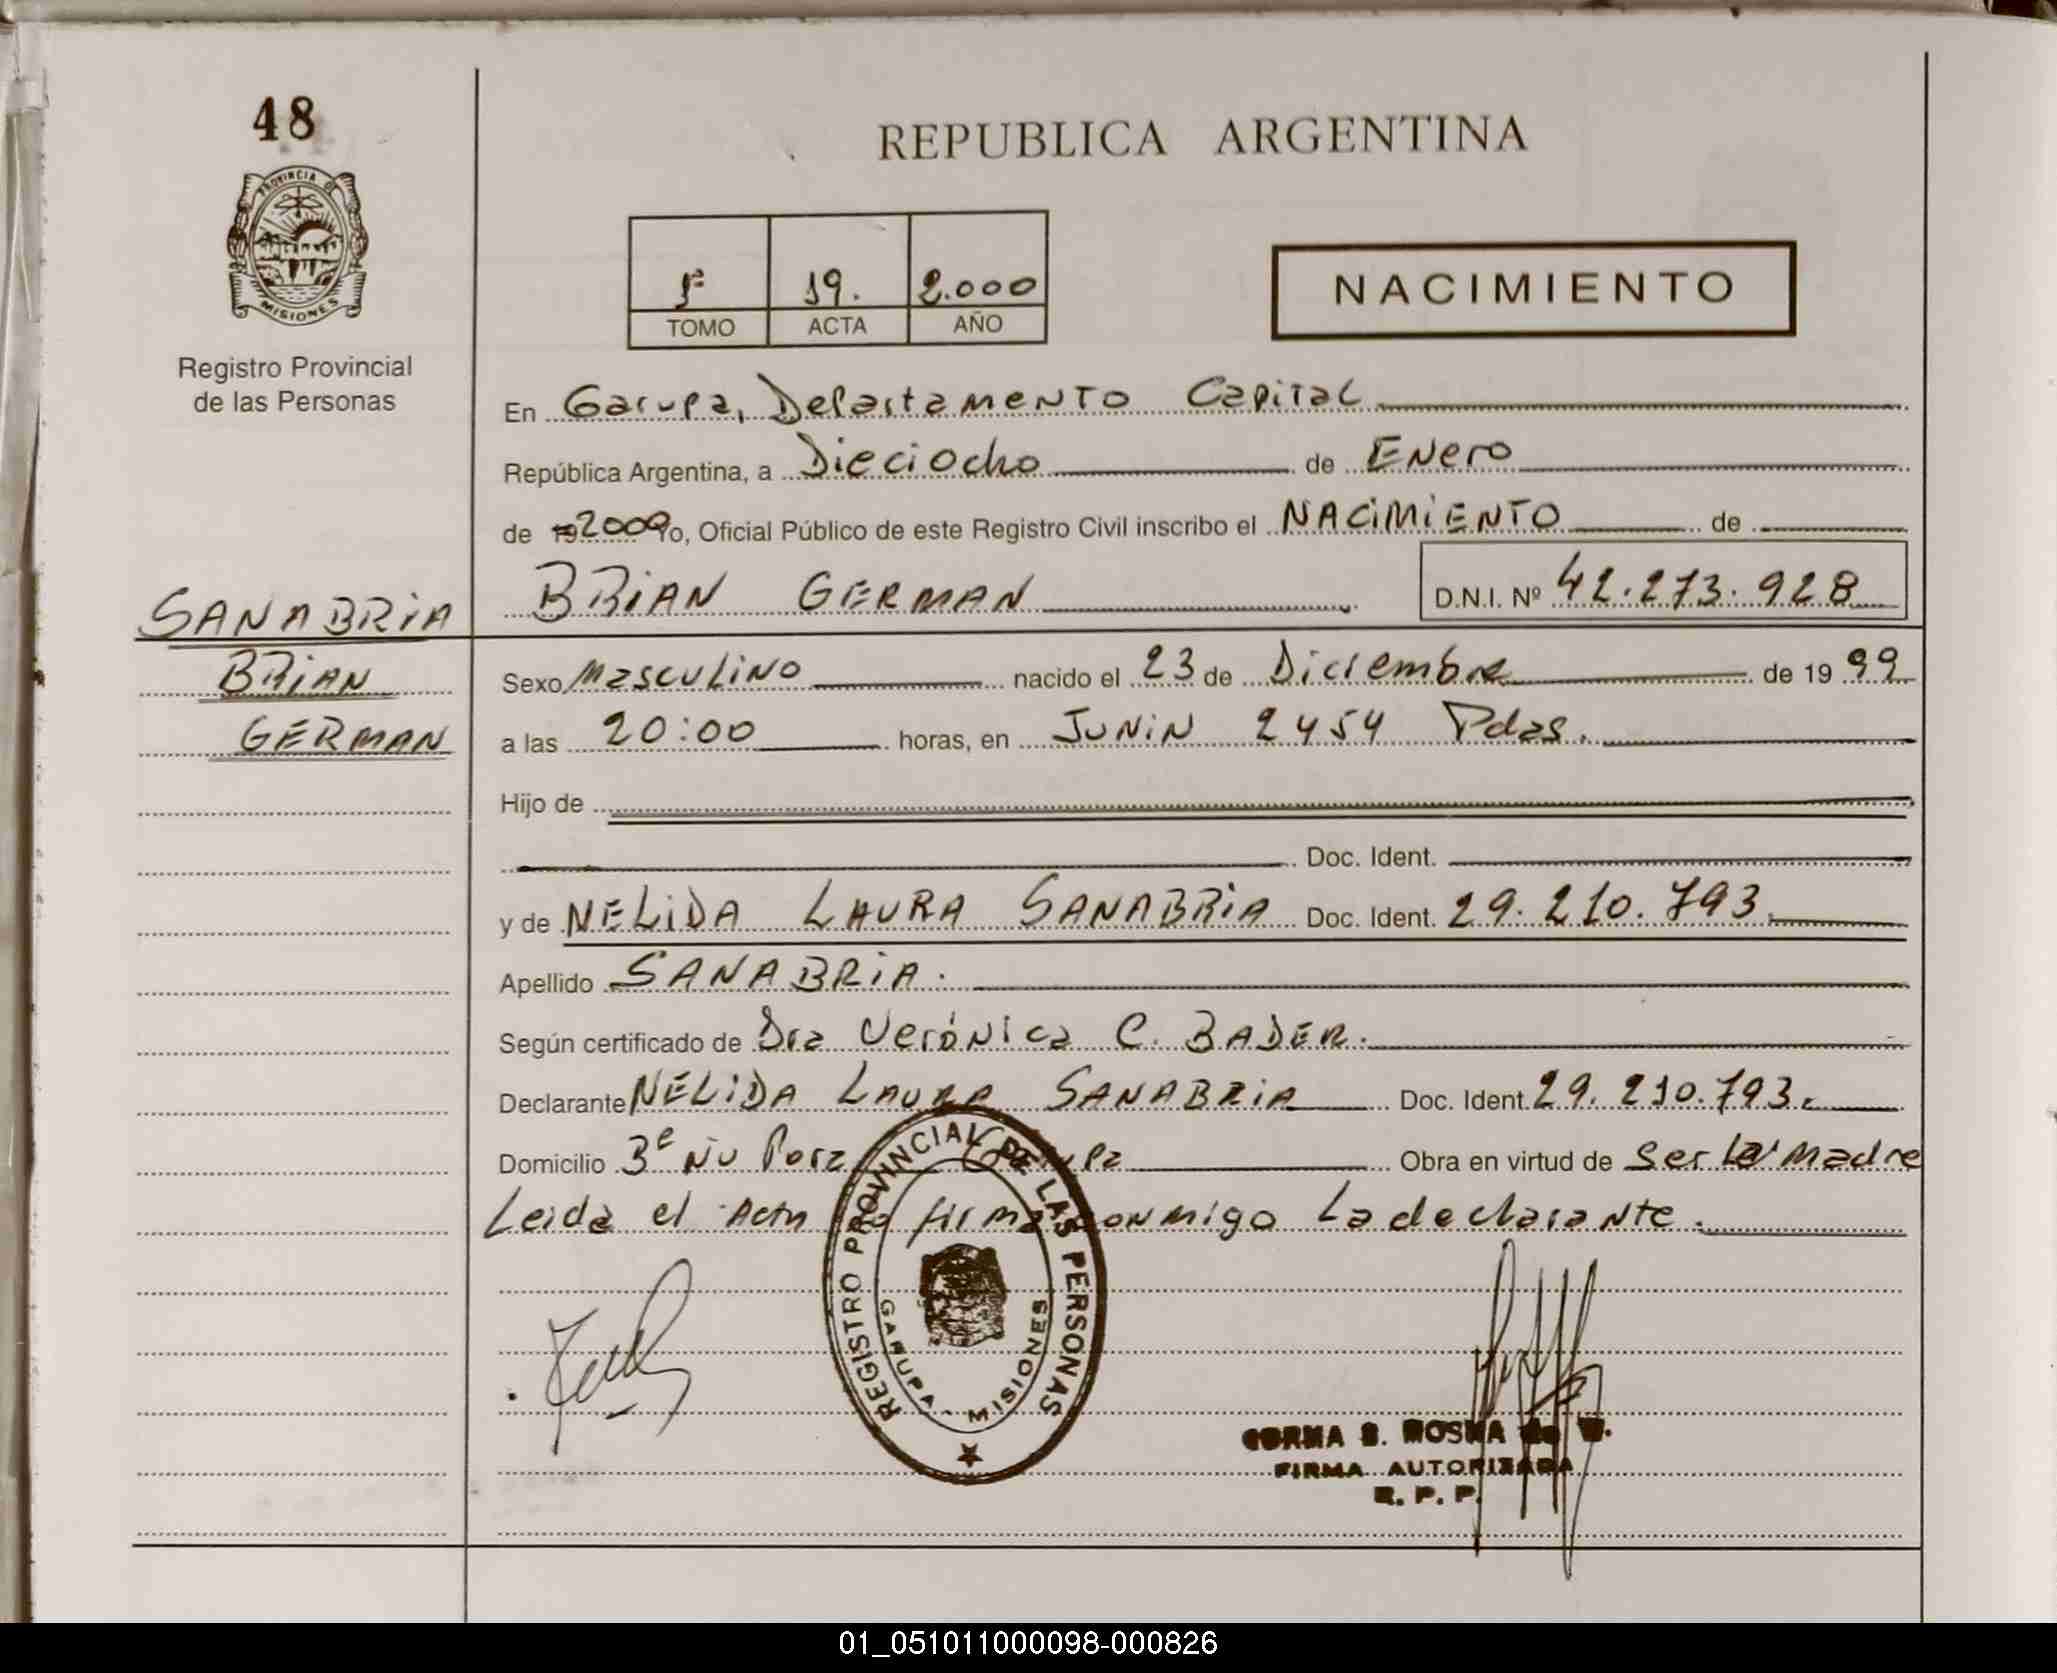 48
REPUBLICA ARGENTINA
PROVINCIA DE
MISIONES
Registro Provincial
de las Personas
1º 19. 2.000
TOMO ACTA AÑO
NACIMIENTO
En Garupa, Departamento Capital
República Argentina, a Dieciocho de Enero
de 19 2000 Yo, Oficial Público de este Registro Civil inscribo el NACIMIENTO de
BRIAN GERMAN D.N.I. Nº 42.273.928
SANABRIA
BRIAN
GERMAN
Sexo Masculino nacido el 23 de Diciembre de 1999
a las 20:00 horas, en JUNIN 2454 Pdas.
Hijo de
Doc. Ident.
y de NELIDA LAURA SANABRIA Doc. Ident. 29.210.793.
Apellido SANABRIA.
Según certificado de Dra Verónica C. BADER.
Declarante NELIDA LAURA SANABRIA Doc. Ident. 29.210.793.
Domicilio 3º Ñu Pora Obra en virtud de Ser La Madre
Leida el Acta firma conmigo La declarante.
REGISTRO PROVINCIAL DE LAS PERSONAS
GARUPA - MISIONES
FIRMA AUTORIZADA
R. P. P.
01_051011000098-000826